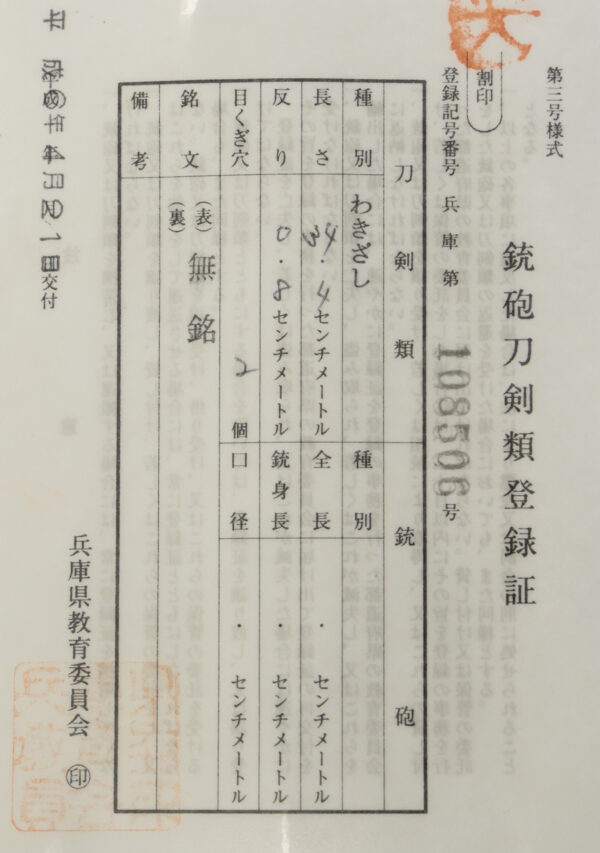 第三号様式
銃砲刀剣類登録証
割印
登録記号番号 兵庫第 108506 号
刀剣類 銃砲
種別 わきざし 種別
長さ 34.4 センチメートル 全長 ・ センチメートル
反り 0.8 センチメートル 銃身長 ・ センチメートル
目くぎ穴 2 個 口径 ・ センチメートル
銘文 (表) 無銘
(裏)
備考
交付
兵庫県教育委員会 ㊞